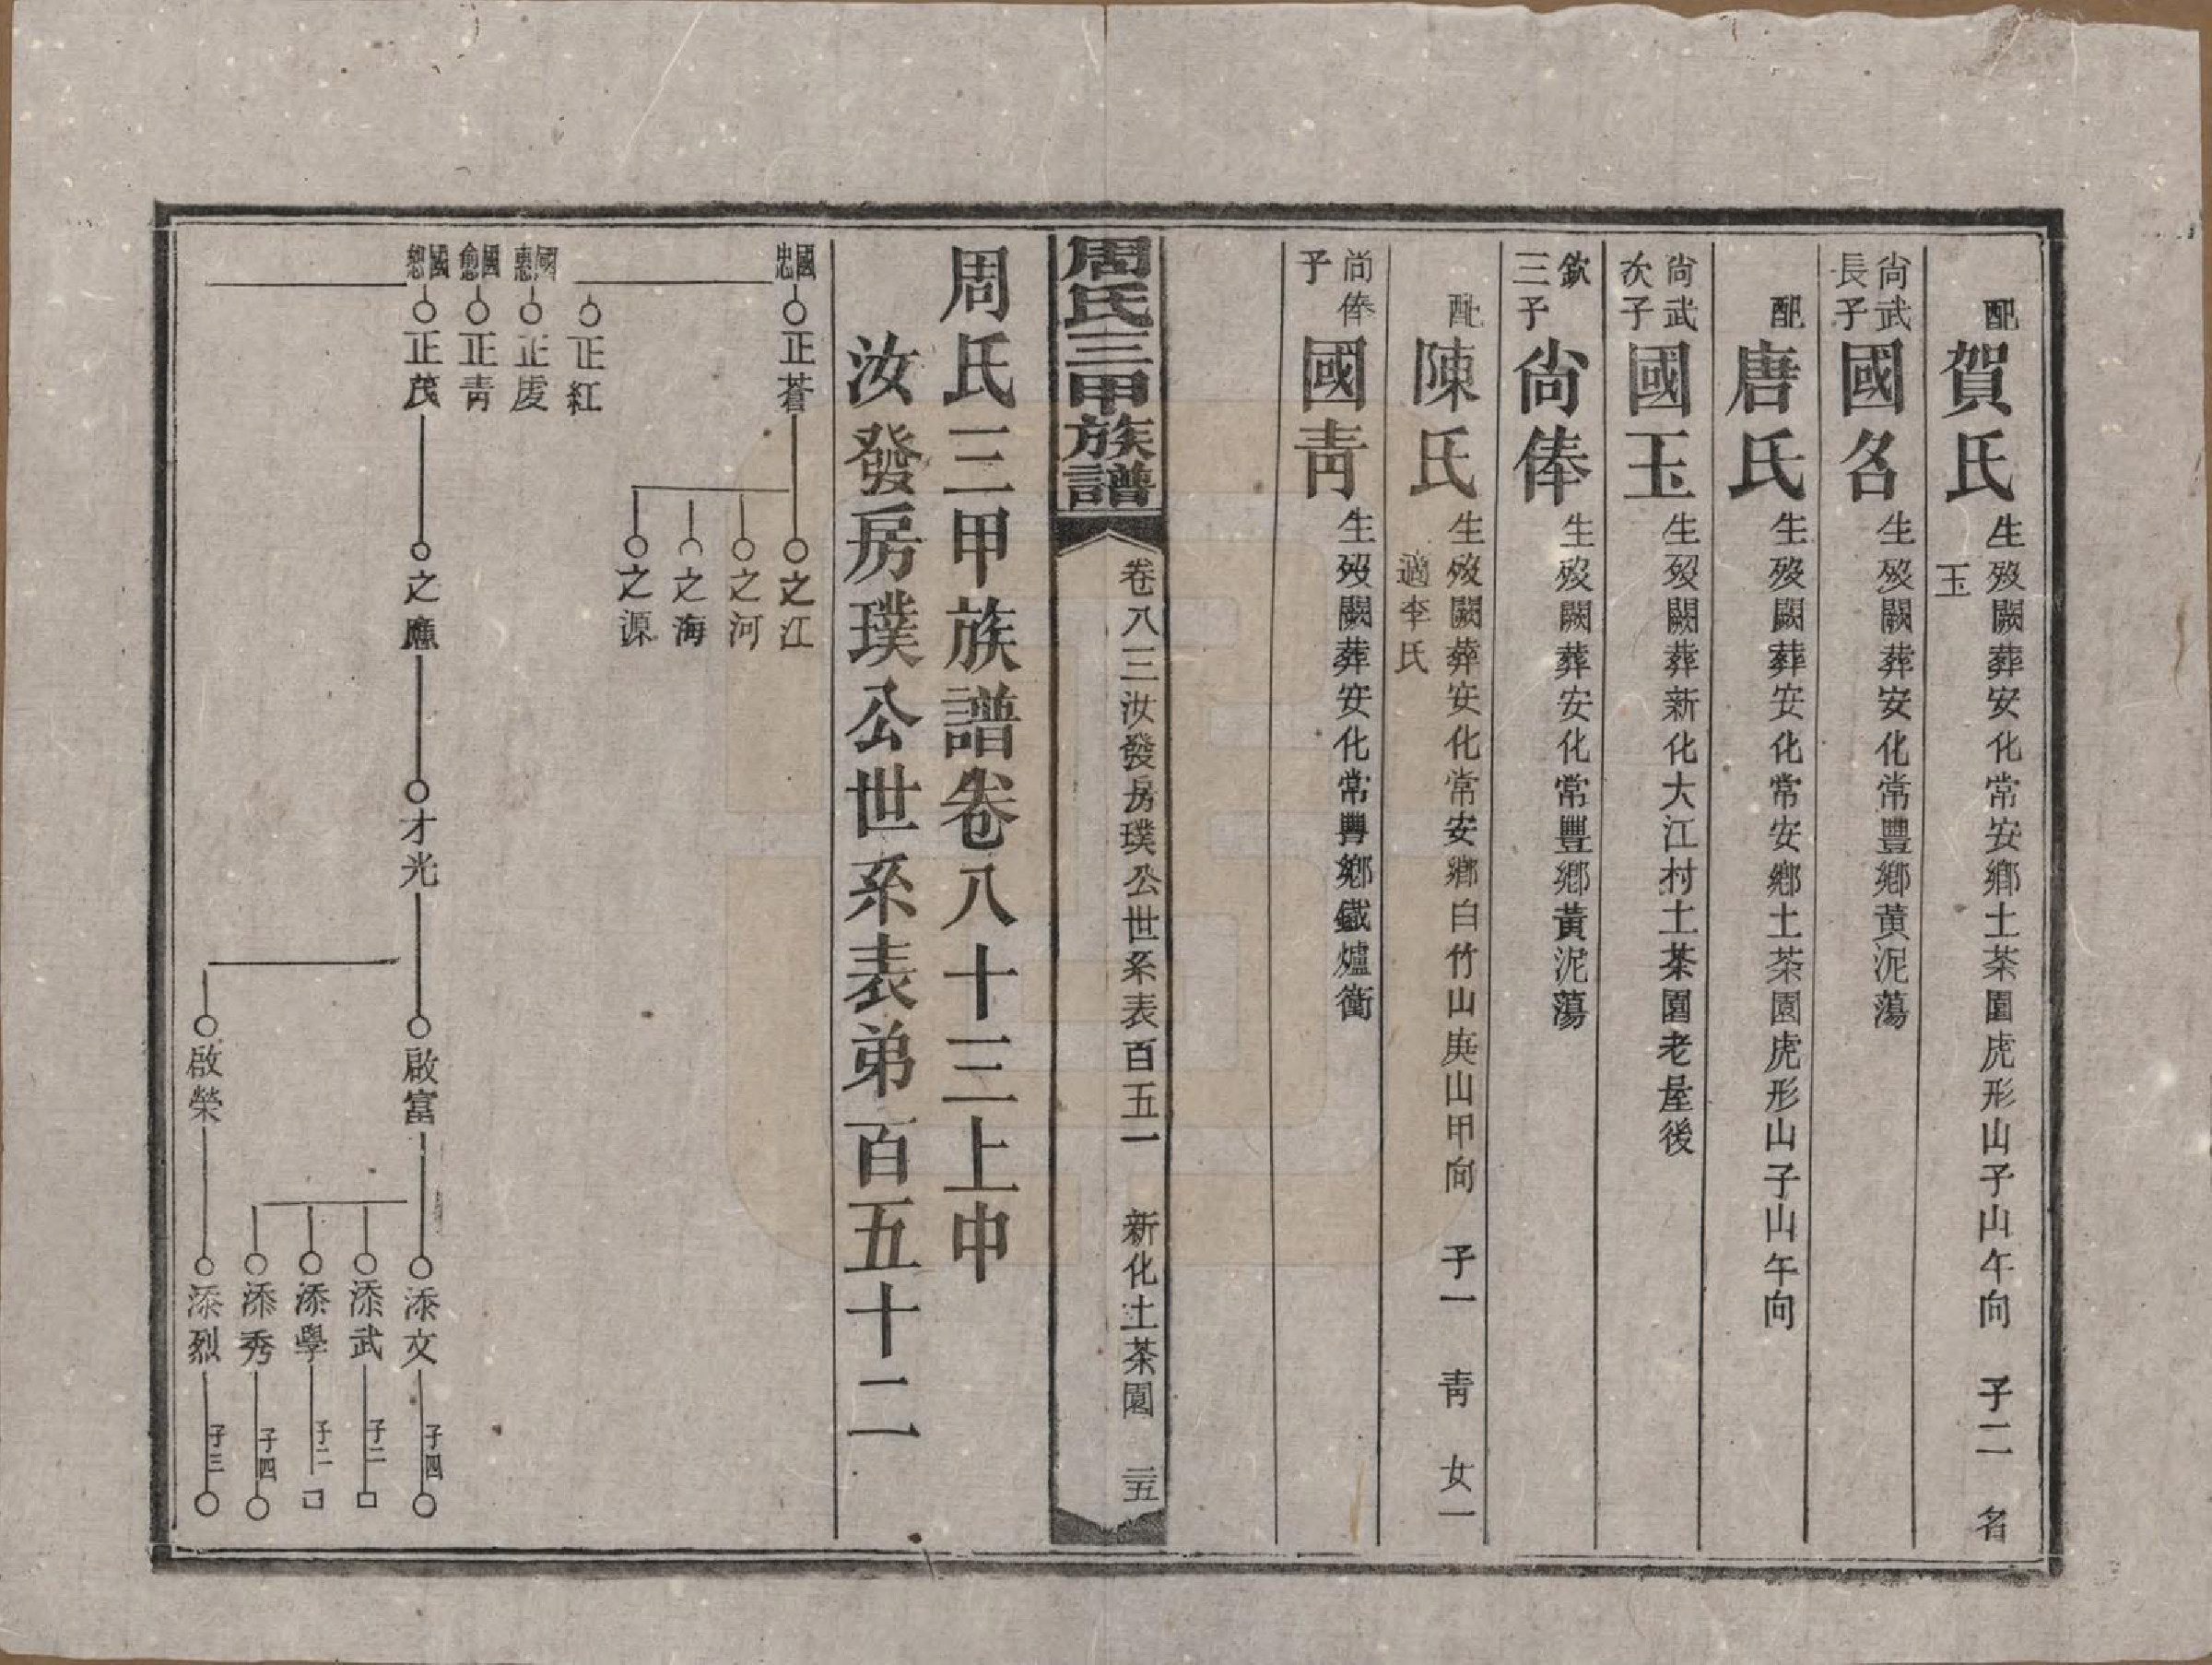 配賀氏生歿闕葬安化常安鄉土茶園虎形山子山午向 子二 名
玉
尙武長子國名生歿闕葬安化常豐鄉黃泥蕩
配唐氏生歿闕葬安化常安鄉土茶園虎形山子山午向
尙武次子國玉生歿闕葬新化大江村土茶園老屋後
欽三子尙俸生歿闕葬安化常豐鄉黃泥蕩
配陳氏生歿闕葬安化常安鄉白竹山庚山甲向 子一 青 女一
適李氏
尚俸子國靑生歿闕葬安化常豐鄉鐵爐衝
周氏三甲族譜
卷八三汝發房璞公世系表百五一 新化土茶園 三五
周氏三甲族譜卷八十三上中
汝發房璞公世系表弟百五十二
國忠 正蒼 之江
之河
之海
之源
正紅
國惠 正虔
國愈 正青
國恕 正茂 之應 才光 啟富 添文 子四
添武 子二
添學 子二
添秀 子四
啟榮 添烈 子三